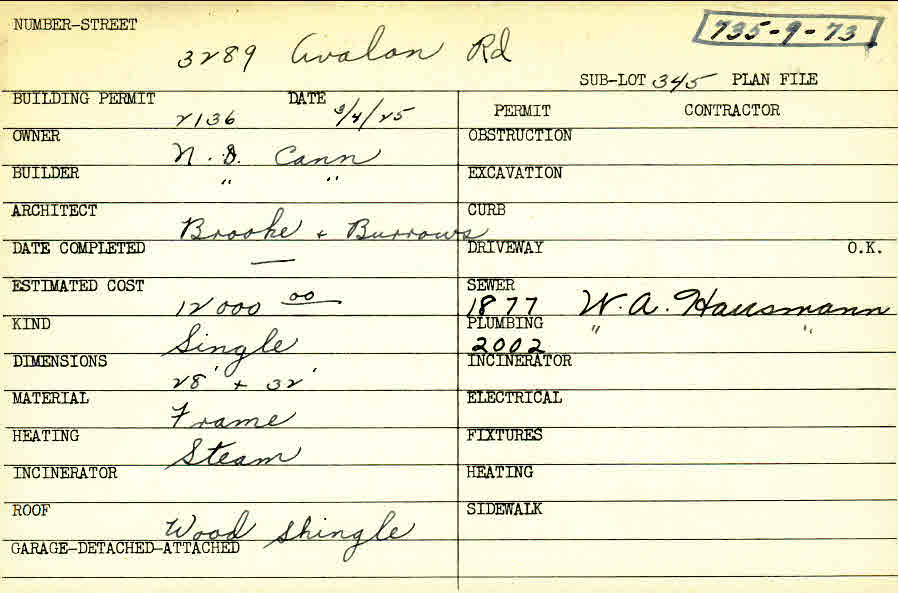 NUMBER-STREET
3289 Avalon Rd
735-9-73
SUB-LOT 345 PLAN FILE
BUILDING PERMIT 2136 DATE 3/4/25
PERMIT CONTRACTOR
OWNER N. D. Cann
OBSTRUCTION
BUILDER " "
EXCAVATION
ARCHITECT Brooke + Burrows
CURB
DATE COMPLETED —
DRIVEWAY O.K.
ESTIMATED COST 12000 00
SEWER 1877 W. A. Hausmann
KIND Single
PLUMBING 2002 " "
DIMENSIONS 28' + 32'
INCINERATOR
MATERIAL Frame
ELECTRICAL
HEATING Steam
FIXTURES
INCINERATOR
HEATING
ROOF Wood Shingle
SIDEWALK
GARAGE-DETACHED-ATTACHED